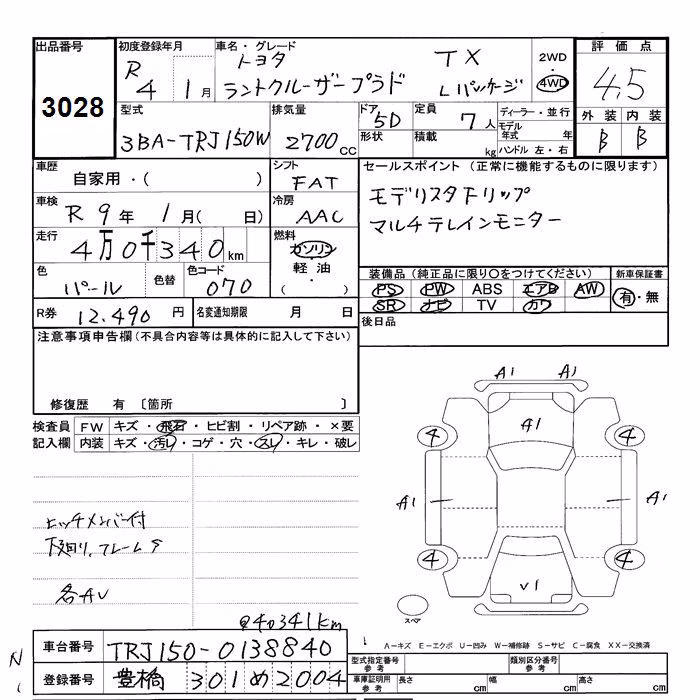 出品番号
3028
初度登録年月
R 4 1月
車名・グレード
トヨタ TX
ラントクルーザープラド Lパッケージ
2WD
・
4WD
評価点
4.5
外装 内装
B B
型式
3BA-TRJ150W
排気量
2700cc
ドア 5D
形状
定員 7人
積載 kg
ディーラー・並行
モデル年式 年
ハンドル 左・右
車歴
自家用・( )
シフト
FAT
車検
R 9年 1月( 日)
冷房
AAC
走行
4万0千340km
燃料
ガソリン
・
軽油
・
( )
色
パール
色替
色コード
070
R券 12.490円
名変通知期限 月 日
セールスポイント (正常に機能するものに限ります)
モデリスタドリップ
マルチテレインモニター
装備品(純正品に限り○をつけてください)
PS PW ABS エアB AW
SR ナビ TV カワ
新車保証書
有・無
後日品
注意事項申告欄(不具合内容等は具体的に記入して下さい)
修復歴 有 〔箇所 〕
検査員記入欄
FW キズ・飛石・ヒビ割・リペア跡・×要
内装 キズ・汚レ・コゲ・穴・スレ・キレ・破レ
ヒッチメンバー付
下回り、フレームS
各AU
@40341km
A1 A1
A1
4 4
A1 A1
4 4
V1
スペア
A-キズ E-エクボ U-凹み W-補修跡 S-サビ C-腐食 XX-交換済
車台番号 TRJ150-0138840
登録番号 豊橋 301め2004
型式指定番号 参考
類別区分番号 参考
車庫証明用 参考
長さ cm 幅 cm 高さ cm